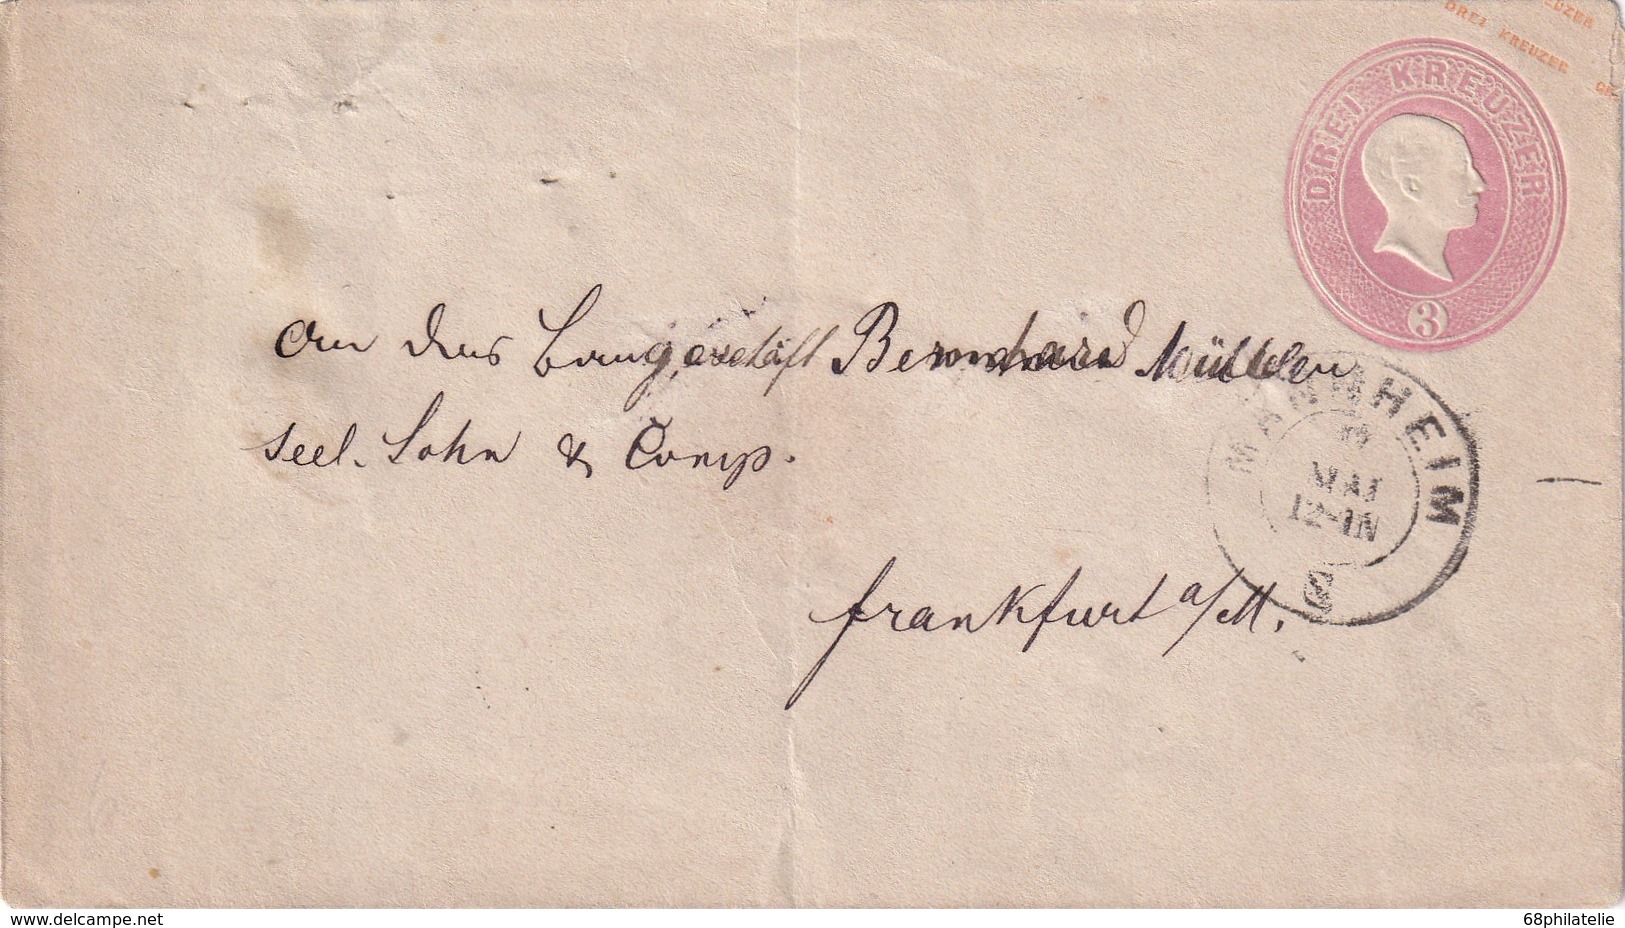 DREI KREUZER
DREI KREUZER
3
An das Baugeschäft Bernhard
seel. Sohn & Comp.
Frankfurt a/M.
MANNHEIM
MAI
12-1N
delcampe.net
68philatelie